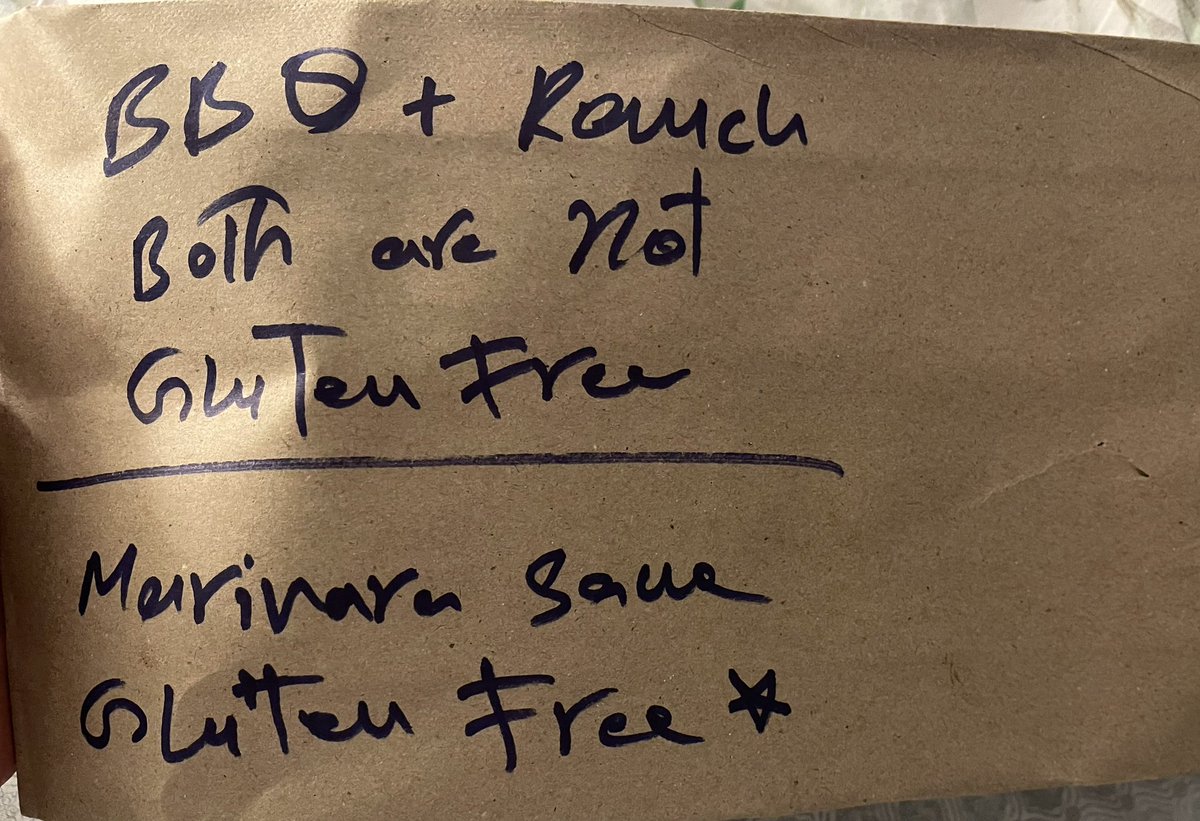 BBQ + Ranch
Both are not
Gluten Free
Marinara Sauce
Glutten Free ★